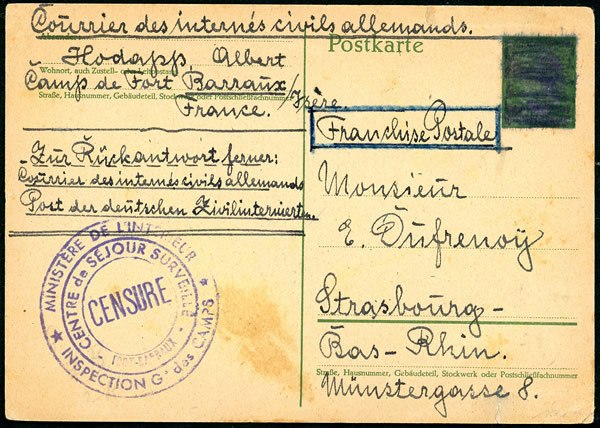 Courrier des internés civils allemands.
Absender:
Hodapp, Albert
Wohnort, auch Zustell- oder Leitpostamt
Camp de Fort Barraux/Isère.
Straße, Hausnummer, Gebäudeteil, Stockwerk oder Postschließfachnummer
France.
Zur Rückantwort ferner:
Courrier des internés civils allemands
Post der deutschen Zivilinternierten
MINISTÈRE DE L'INTÉRIEUR
CENTRE de SÉJOUR SURVEILLÉ
CENSURE
FORT-BARRAUX
INSPECTION Gle des CAMPS
Postkarte
Franchise Postale
Monsieur
E. Dufrenoy
Strasbourg-
Bas-Rhin.
Straße, Hausnummer, Gebäudeteil, Stockwerk oder Postschließfachnummer
Münstergasse 8.